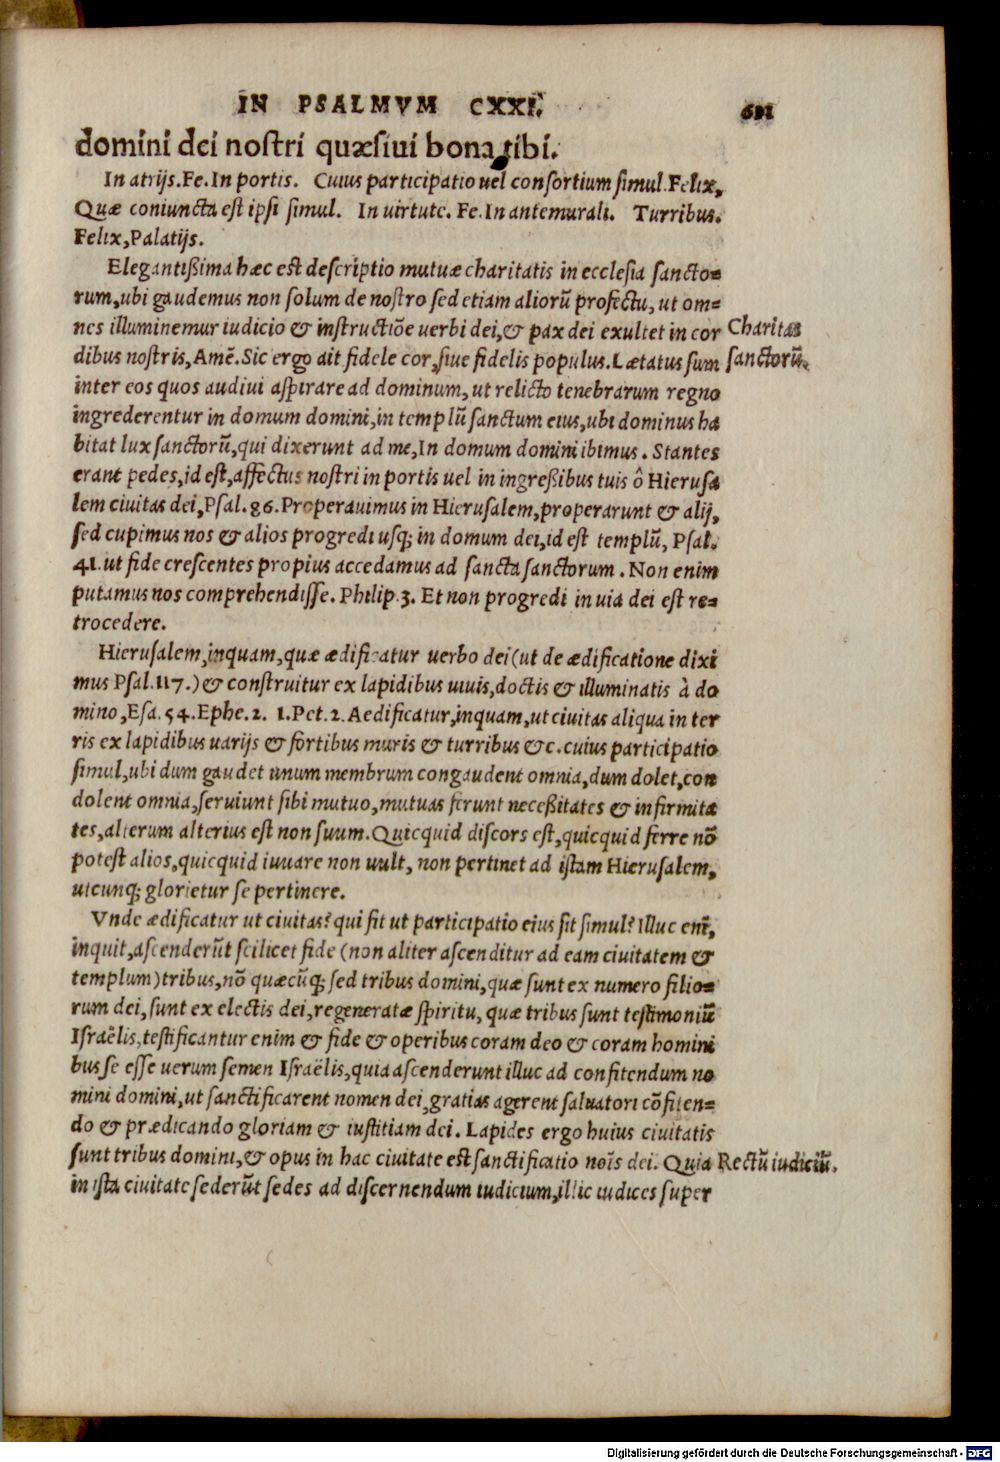 IN PSALMVM CXXI.
611
domini dei nostri quæsiui bona tibi.
In atrijs. Fe. In portis. Cuius participatio uel consortium simul. Felix,
Quæ coniuncta est ipsi simul. In uirtute. Fe. In antemurali. Turribus.
Felix, Palatijs.
Elegantißima hæc est descriptio mutuæ charitatis in ecclesia sancto=
rum, ubi gaudemus non solum de nostro sed etiam aliorũ profectu, ut om=
nes illuminemur iudicio & instructiõe uerbi dei, & pax dei exultet in cor
Charitas
dibus nostris, Amẽ. Sic ergo ait fidele cor, siue fidelis populus. Lætatus sum
sanctorũ.
inter eos quos audiui aspirare ad dominum, ut relicto tenebrarum regno
ingrederentur in domum domini, in templũ sanctum eius, ubi dominus ha
bitat lux sanctorũ, qui dixerunt ad me, In domum domini ibimus. Stantes
erant pedes, id est, affectus nostri in portis uel in ingreßibus tuis ô Hierusa
lem ciuitas dei, Psal. 86. Properauimus in Hierusalem, properarunt & alij,
sed cupimus nos & alios progredi usq; in domum dei, id est templũ, Psal.
41. ut fide crescentes propius accedamus ad sancta sanctorum. Non enim
putamus nos comprehendisse. Philip. 3. Et non progredi in uia dei est re=
trocedere.
Hierusalem, inquam, quæ ædificatur uerbo dei (ut de ædificatione dixi
mus Psal. 117.) & construitur ex lapidibus uiuis, doctis & illuminatis à do
mino, Esa. 54. Ephe. 2. 1. Pet. 2. Aedificatur, inquam, ut ciuitas aliqua in ter
ris ex lapidibus uarijs & fortibus muris & turribus &c. cuius participatio
simul, ubi dum gaudet unum membrum congaudent omnia, dum dolet, con
dolent omnia, seruiunt sibi mutuo, mutuas ferunt neceßitates & infirmita
tes, alterum alterius est non suum. Quicquid discors est, quicquid ferre nõ
potest alios, quicquid iuuare non uult, non pertinet ad istam Hierusalem,
utcunq; glorietur se pertinere.
Vnde ædificatur ut ciuitas? qui fit ut participatio eius sit simul? Illuc enĩ,
inquit, ascenderũt scilicet fide (non aliter ascenditur ad eam ciuitatem &
templum) tribus, nõ quæcũq; sed tribus domini, quæ sunt ex numero filio=
rum dei, sunt ex electis dei, regeneratæ spiritu, quæ tribus sunt testimoniũ
Israëlis, testificantur enim & fide & operibus coram deo & coram homini
bus se esse uerum semen Israëlis, quia ascenderunt illuc ad confitendum no
mini domini, ut sanctificarent nomen dei, gratias agerent saluatori cõfiten=
do & prædicando gloriam & iustitiam dei. Lapides ergo huius ciuitatis
sunt tribus domini, & opus in hac ciuitate est sanctificatio noĩs dei. Quia
Rectũ iudiciũ.
in ista ciuitate sederũt sedes ad discernendum iudicium, illic iudices super
Digitalisierung gefördert durch die Deutsche Forschungsgemeinschaft - DFG